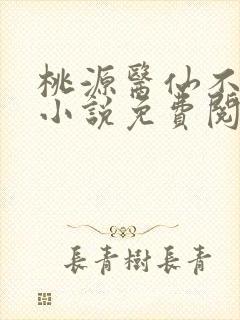 桃源醫仙不
小說免費閱
長青樹長青